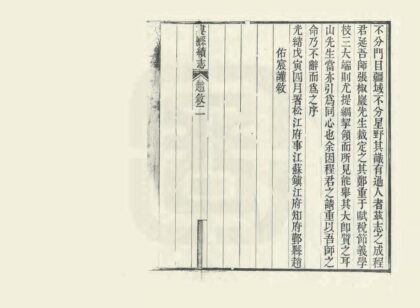 不分門目疆域不分星野其識有過人者茲志之成程
君延吾師張椒巖先生裁定之其鄭重于賦稅節義學
校三大端則尤提綱挈領而所見能舉其大即質之耳
山先生當亦引為同心也余因程君之請重以吾師之
命乃不辭而為之序
光緒戊寅四月署松江府事江蘇鎮江府知府鄞縣趙
佑宸謹敘
婁縣續志
趙敘二